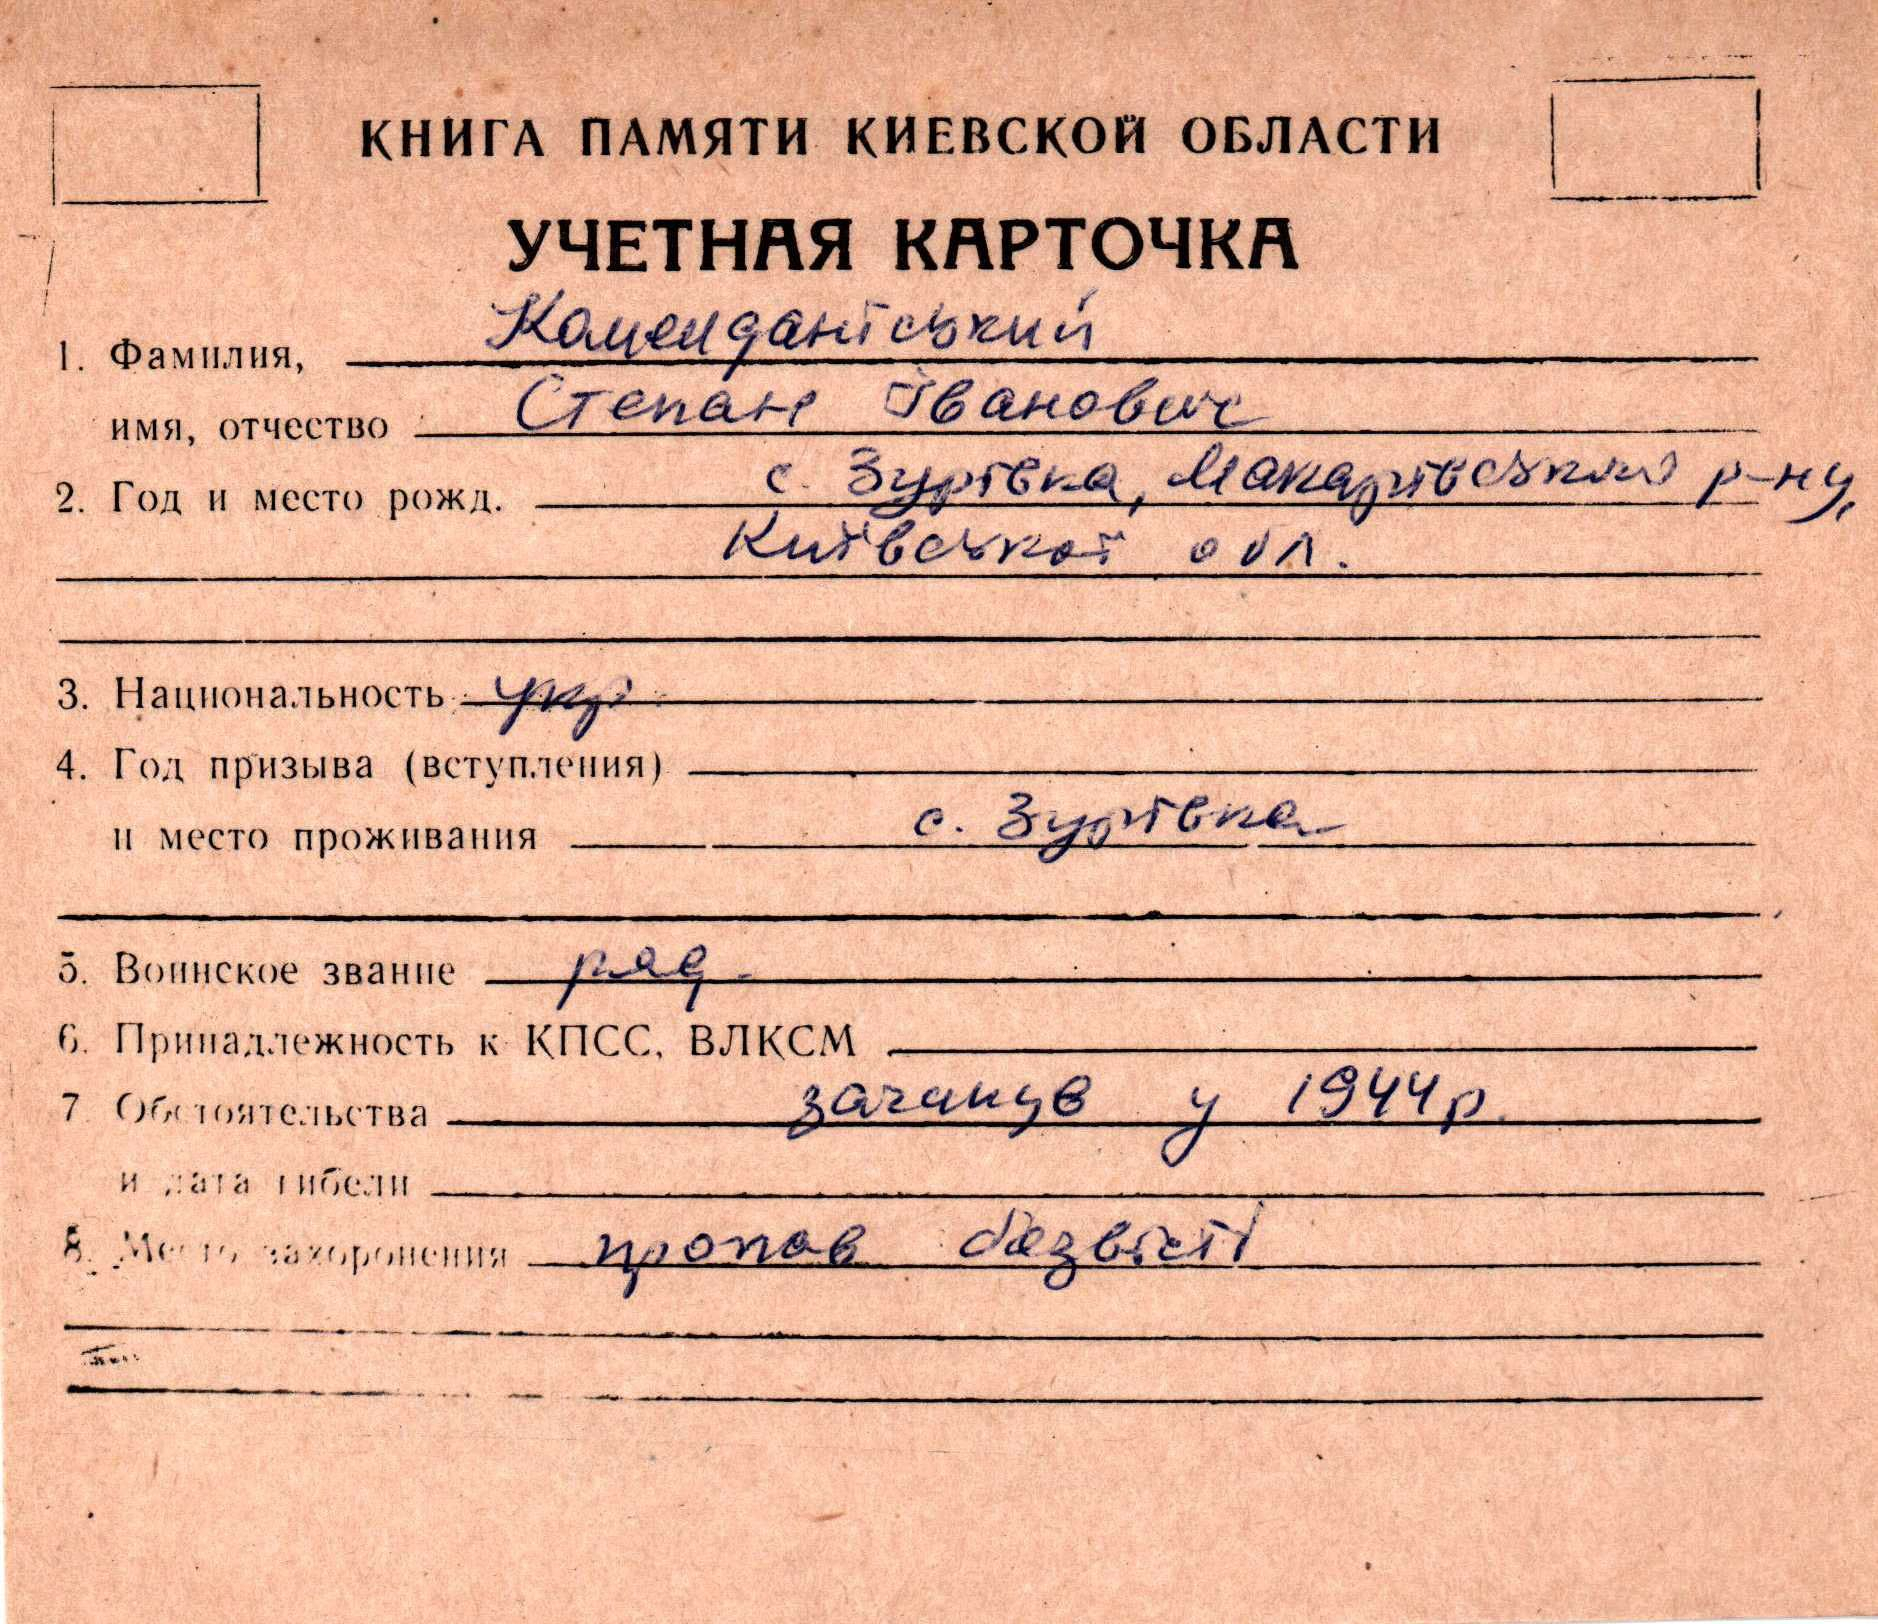 КНИГА ПАМЯТИ КИЕВСКОЙ ОБЛАСТИ
УЧЕТНАЯ КАРТОЧКА
1. Фамилия, Комендантський
имя, отчество Степан Іванович
2. Год и место рожд. с. Зурівка, Макарівського р-ну,
Київської обл.
3. Национальность укр.
4. Год призыва (вступления)
и место проживания с. Зурівка
5. Воинское звание ряд.
6. Принадлежность к КПСС, ВЛКСМ
7. Обстоятельства загинув у 1944 р.
и дата гибели
8. Место захоронения пропав безвісті